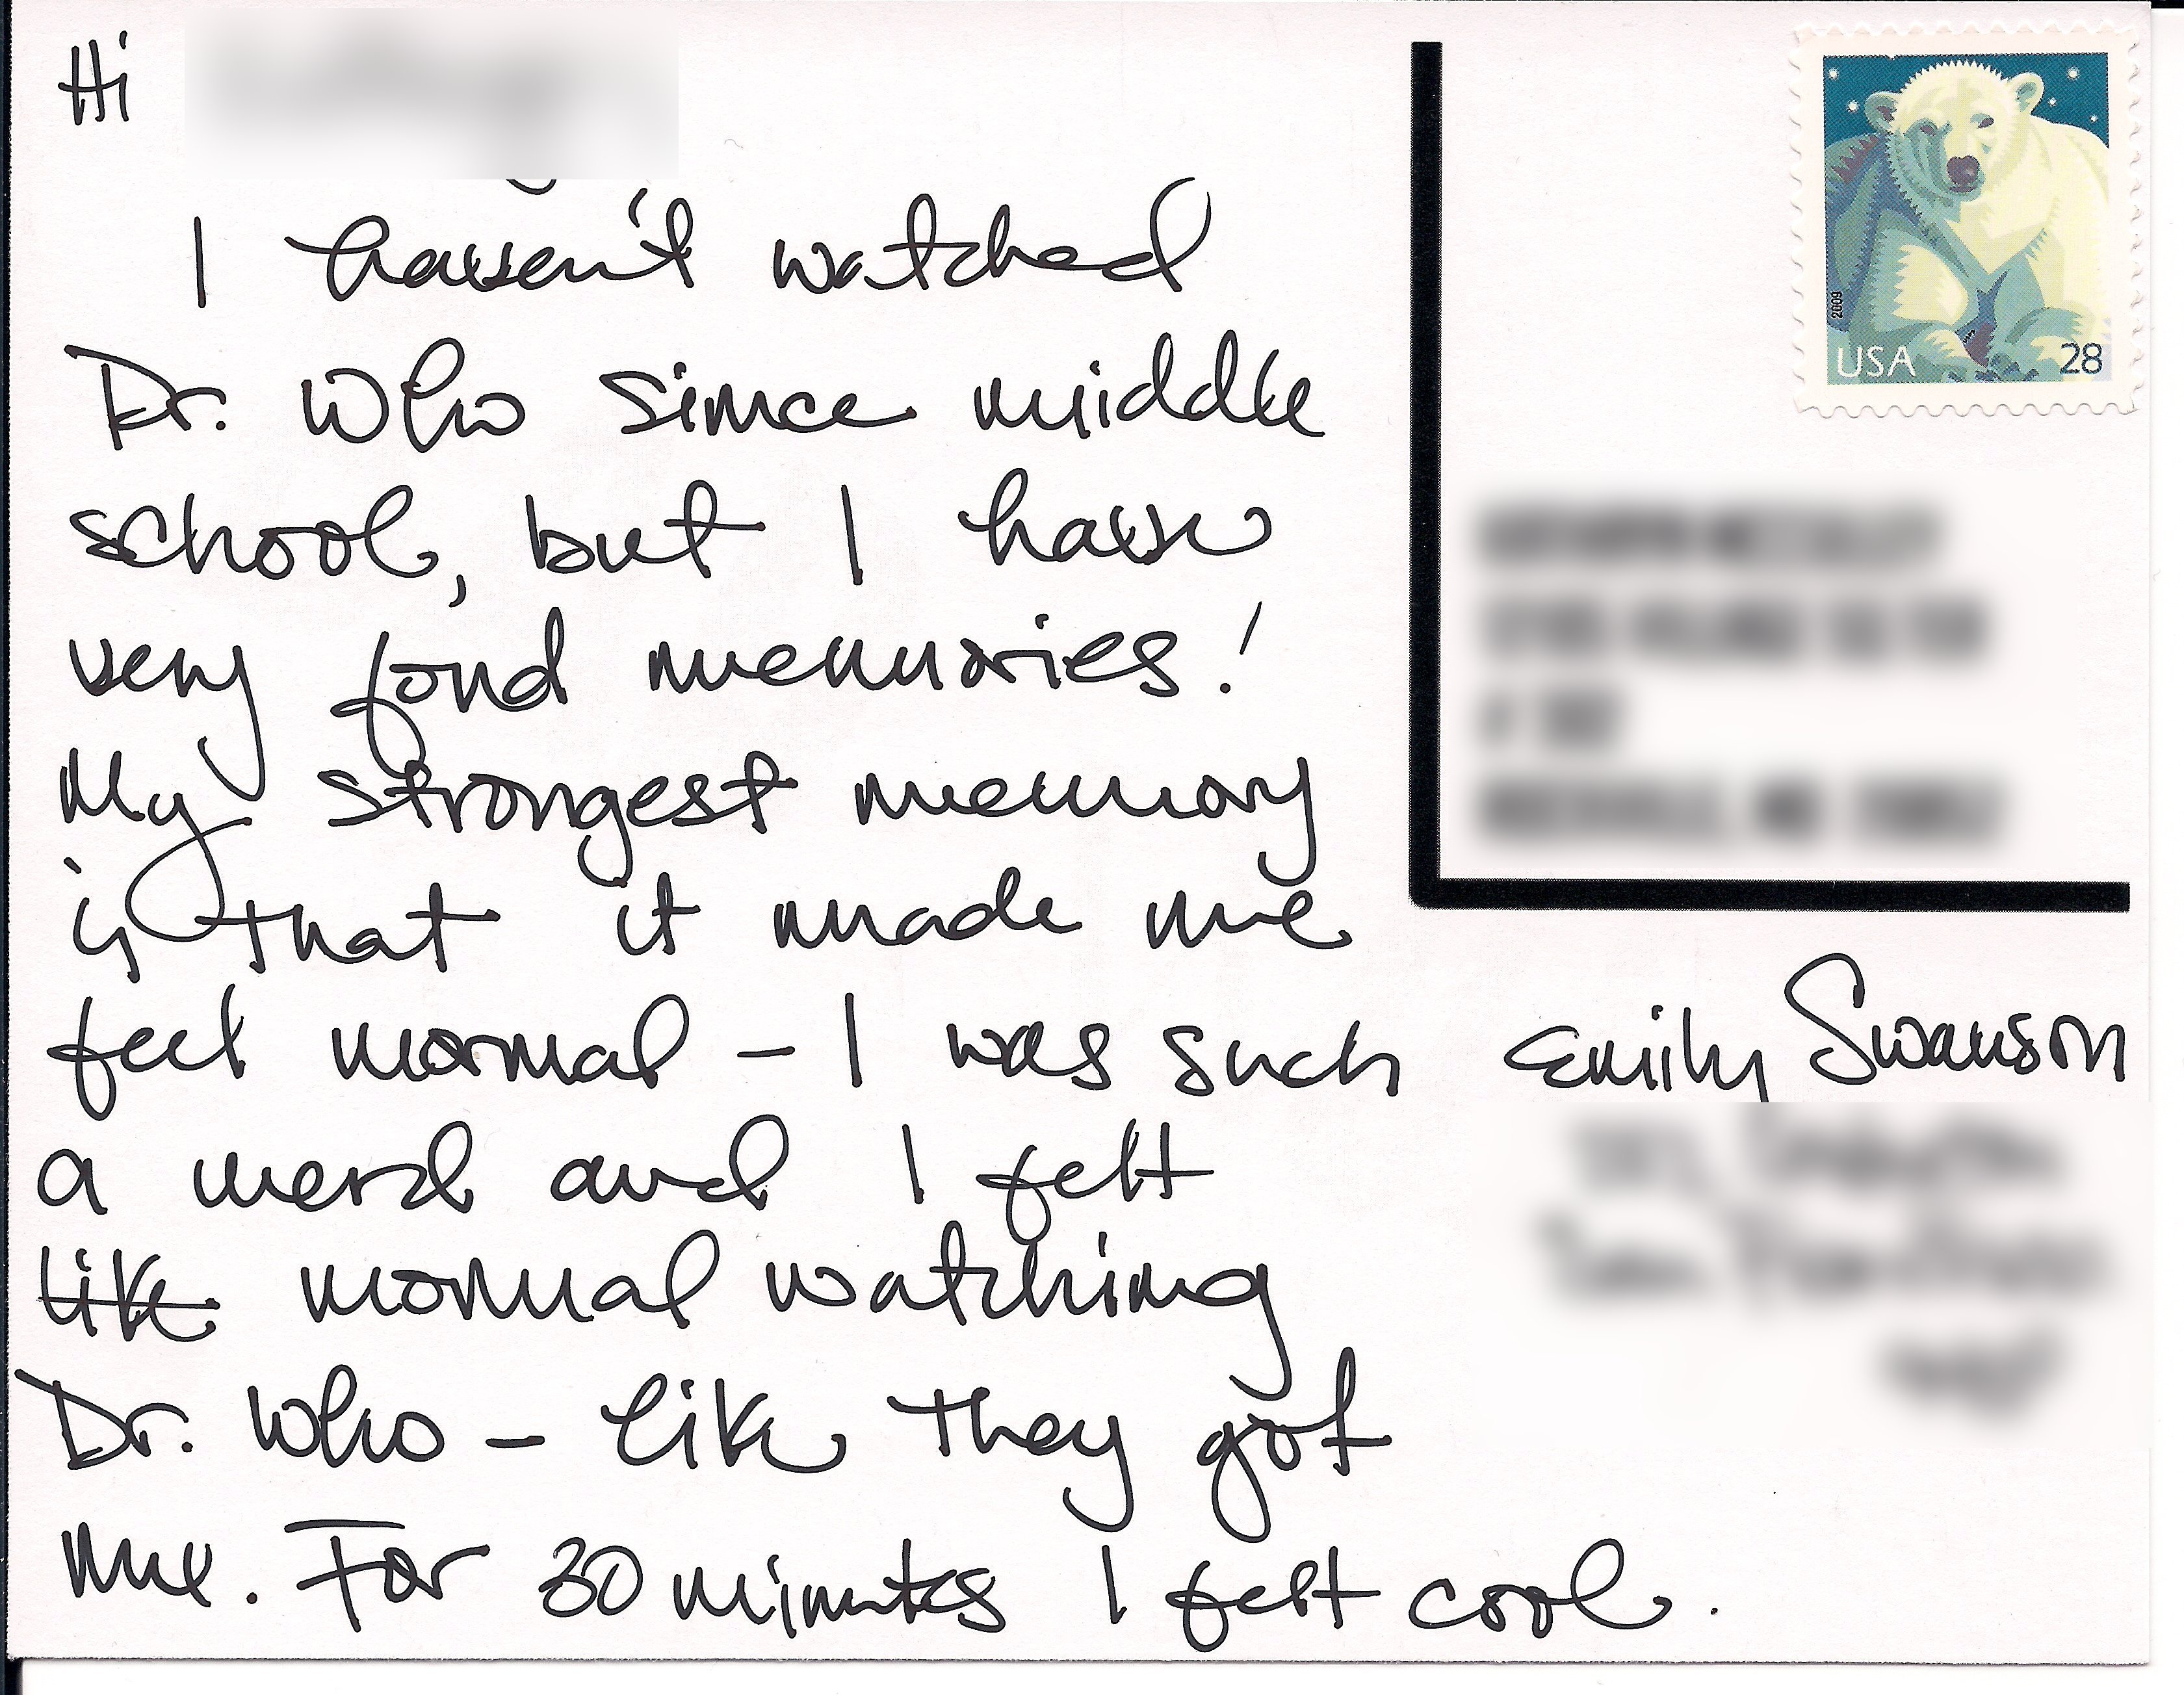 Hi
I haven't watched
Dr. Who since middle
school, but I have
very fond memories!
My strongest memory
is that it made me
feel normal – I was such
a nerd and I felt
like normal watching
Dr. Who – like they got
me. For 30 minutes I felt cool.
2009
USA 28
Emily Swanson